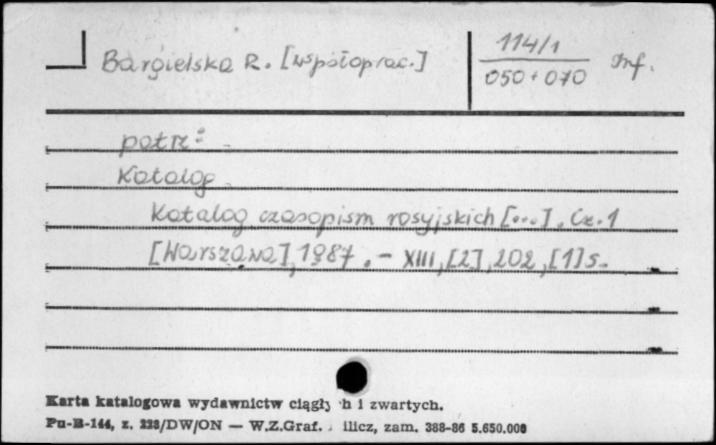 Bargielska R. [współoprac.]
114/1
050+070
Inf.
patrz:
Katalog
Katalog czasopism rosyjskich [...]. Cz. 1
[Warszawa], 1987. - XIII, [2], 202, [1] s.
Karta katalogowa wydawnictw ciągł h i zwartych.
Pu-B-144, z. 223/DW/ON — W.Z.Graf. ilicz, zam. 388-86 5.650.000